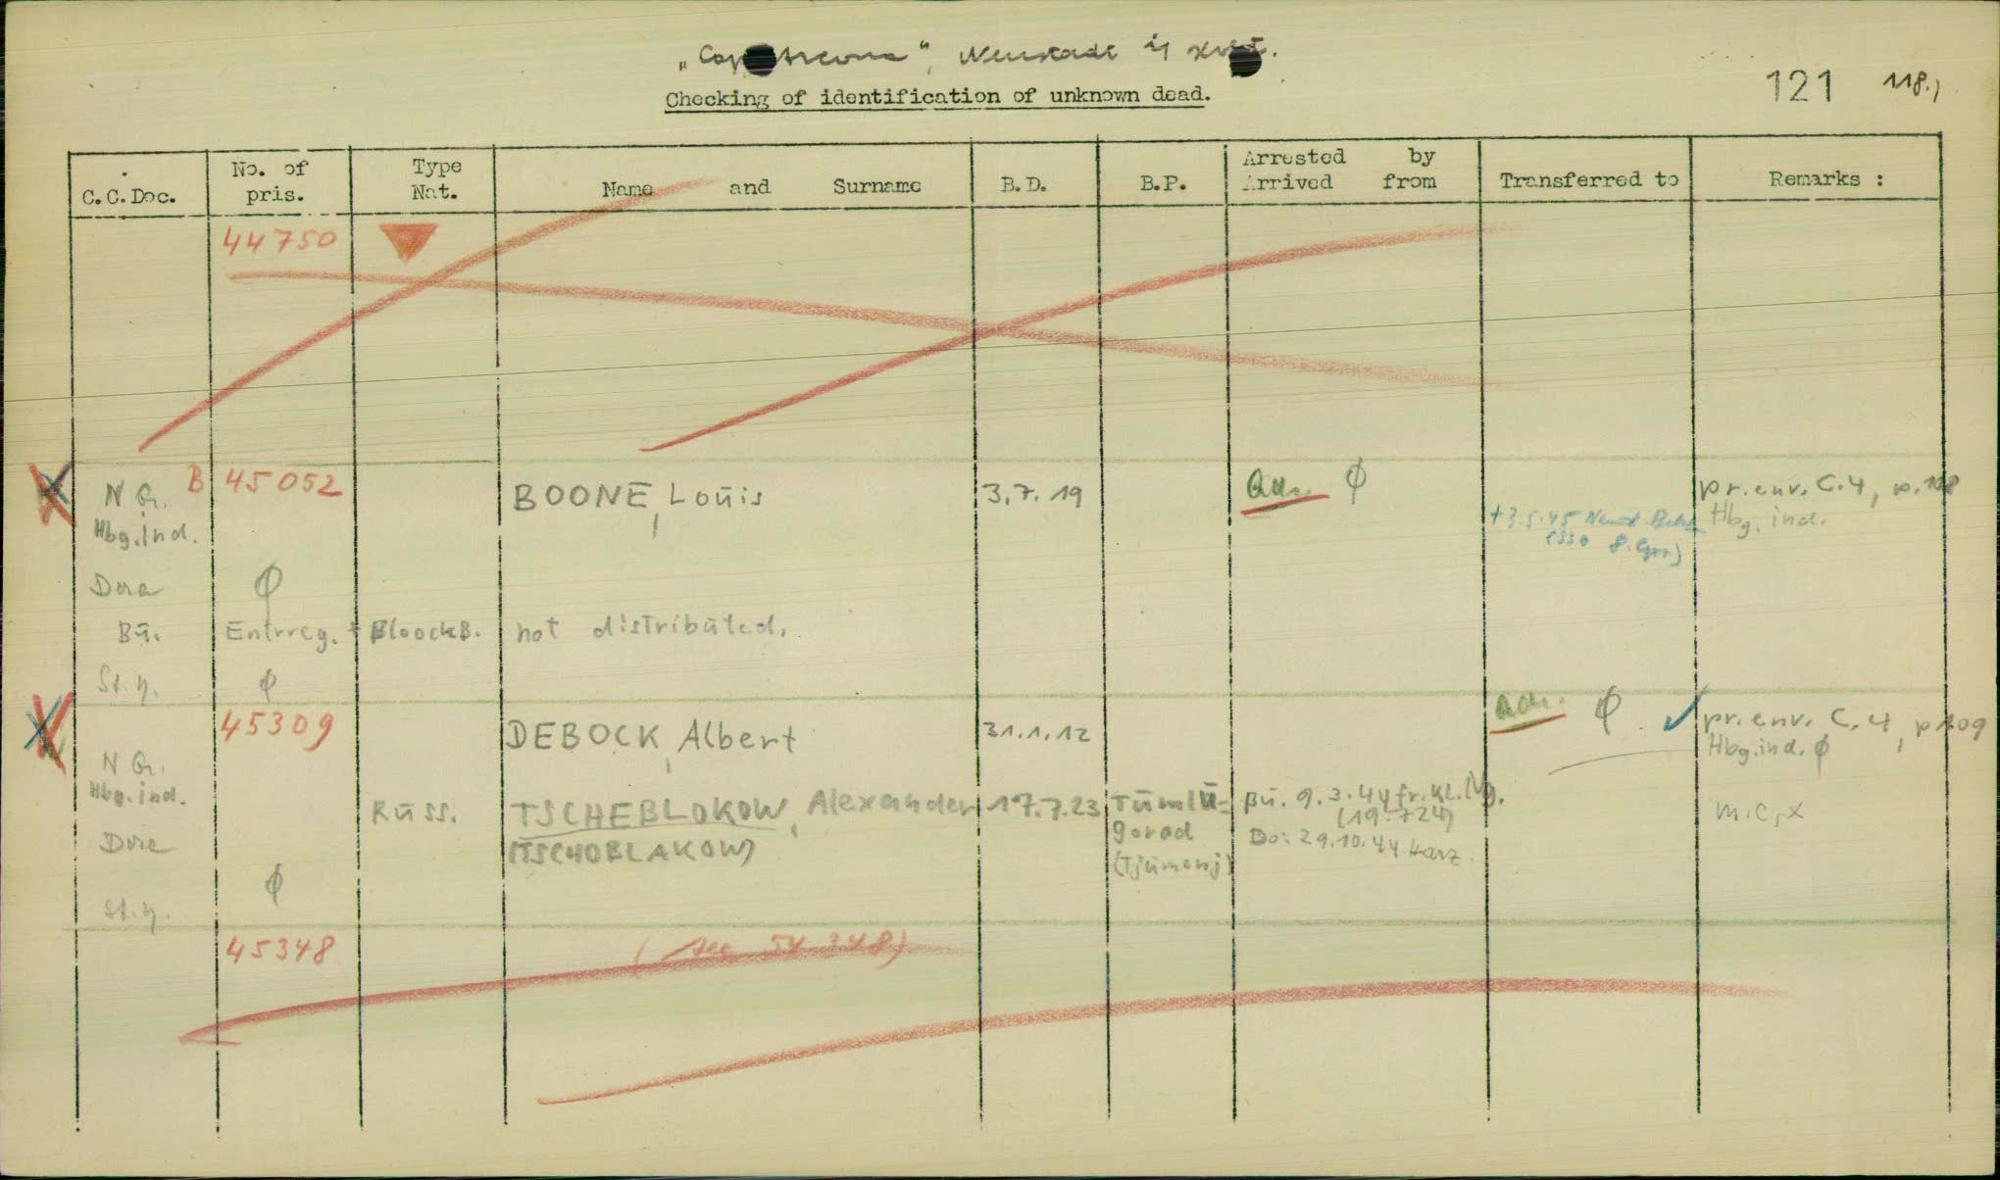 „Cap Arcona", Neustadt i/ Holst.
Checking of identification of unknown dead.
121 118.)
C.C.Doc.
No. of pris.
Type Nat.
Name and Surname
B.D.
B.P.
Arrested by
Arrived from
Transferred to
Remarks :
44750
N G. B 45052 BOONE, Louis 3.7.19 Φ pr. env. C.4, p.
Hbg.ind. +3.5.45 Hbg. ind.
Dora Φ
Bu. Entrreg. + BloockB. not distributed.
St.y. Φ
45309 DEBOCK, Albert 31.1.12 Φ pr. env. C.4, p 109
N G. Hbg.ind. Φ
Hbg.ind. Russ. TSCHEBLOKOW, Alexander 17.7.23 Tumlu- Bu. 9.3.44 fr. Kl. Ng. m.c, x
(19.724)
Dora (TSCHOBLAKOW) gorad Do: 29.10.44 Harz.
(Tjumenj)
Φ
St.y.
45348 (see 54 348)